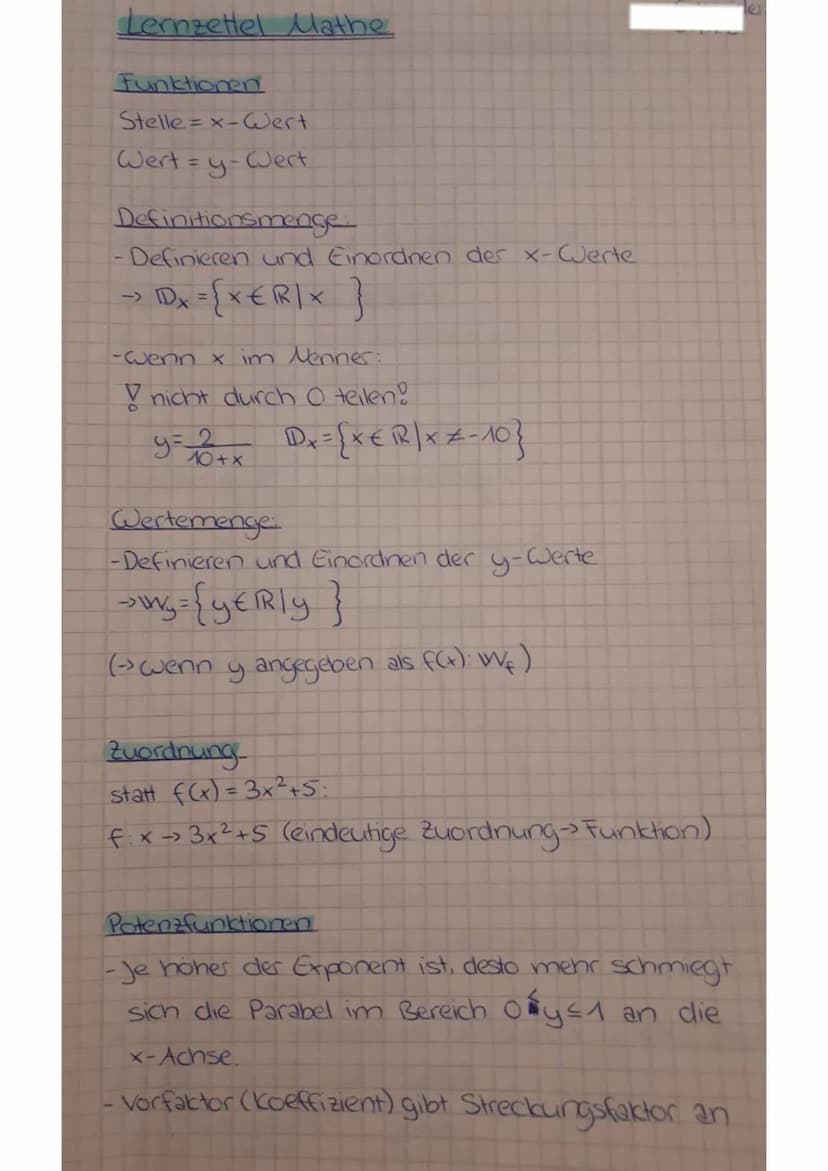 Lernzettel Mathe
Funktionen
Stelle = x-Wert
Wert = y-Wert
Definitionsmenge:
- Definieren und Einordnen der x-Werte
→ 𝔻ₓ = {x ∈ ℝ | x }
- wenn x im Nenner:
! nicht durch 0 teilen!
y = 2/(10+x) 𝔻ₓ = {x ∈ ℝ | x ≠ -10}
Wertemenge:
- Definieren und Einordnen der y-Werte
→ 𝕎y = {y ∈ ℝ | y }
(→ wenn y angegeben als f(x): 𝕎f)
Zuordnung
statt f(x) = 3x² + 5:
f: x → 3x² + 5 (eindeutige Zuordnung → Funktion)
Potenzfunktionen
- Je höher der Exponent ist, desto mehr schmiegt
sich die Parabel im Bereich 0 ≤ y ≤ 1 an die
x-Achse.
- Vorfaktor (Koeffizient) gibt Streckungsfaktor an